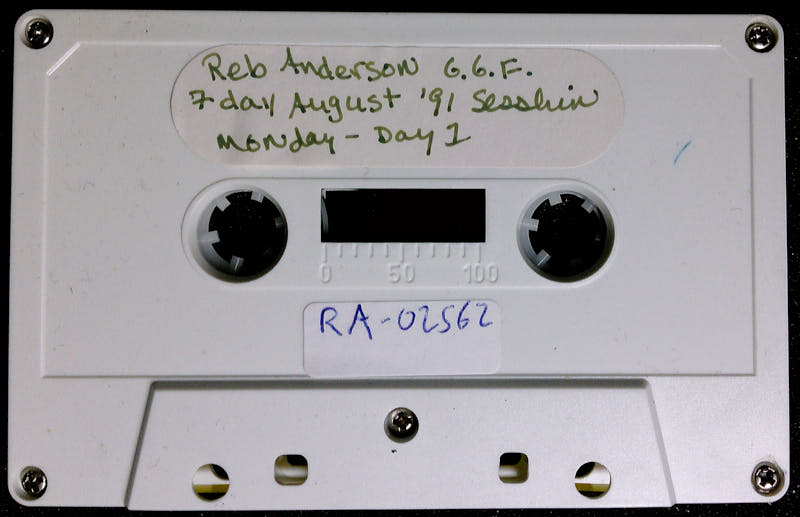 Reb Anderson G.G.F.
7 day August '91 Sesshin
Monday - Day 1
0 50 100
RA-02562